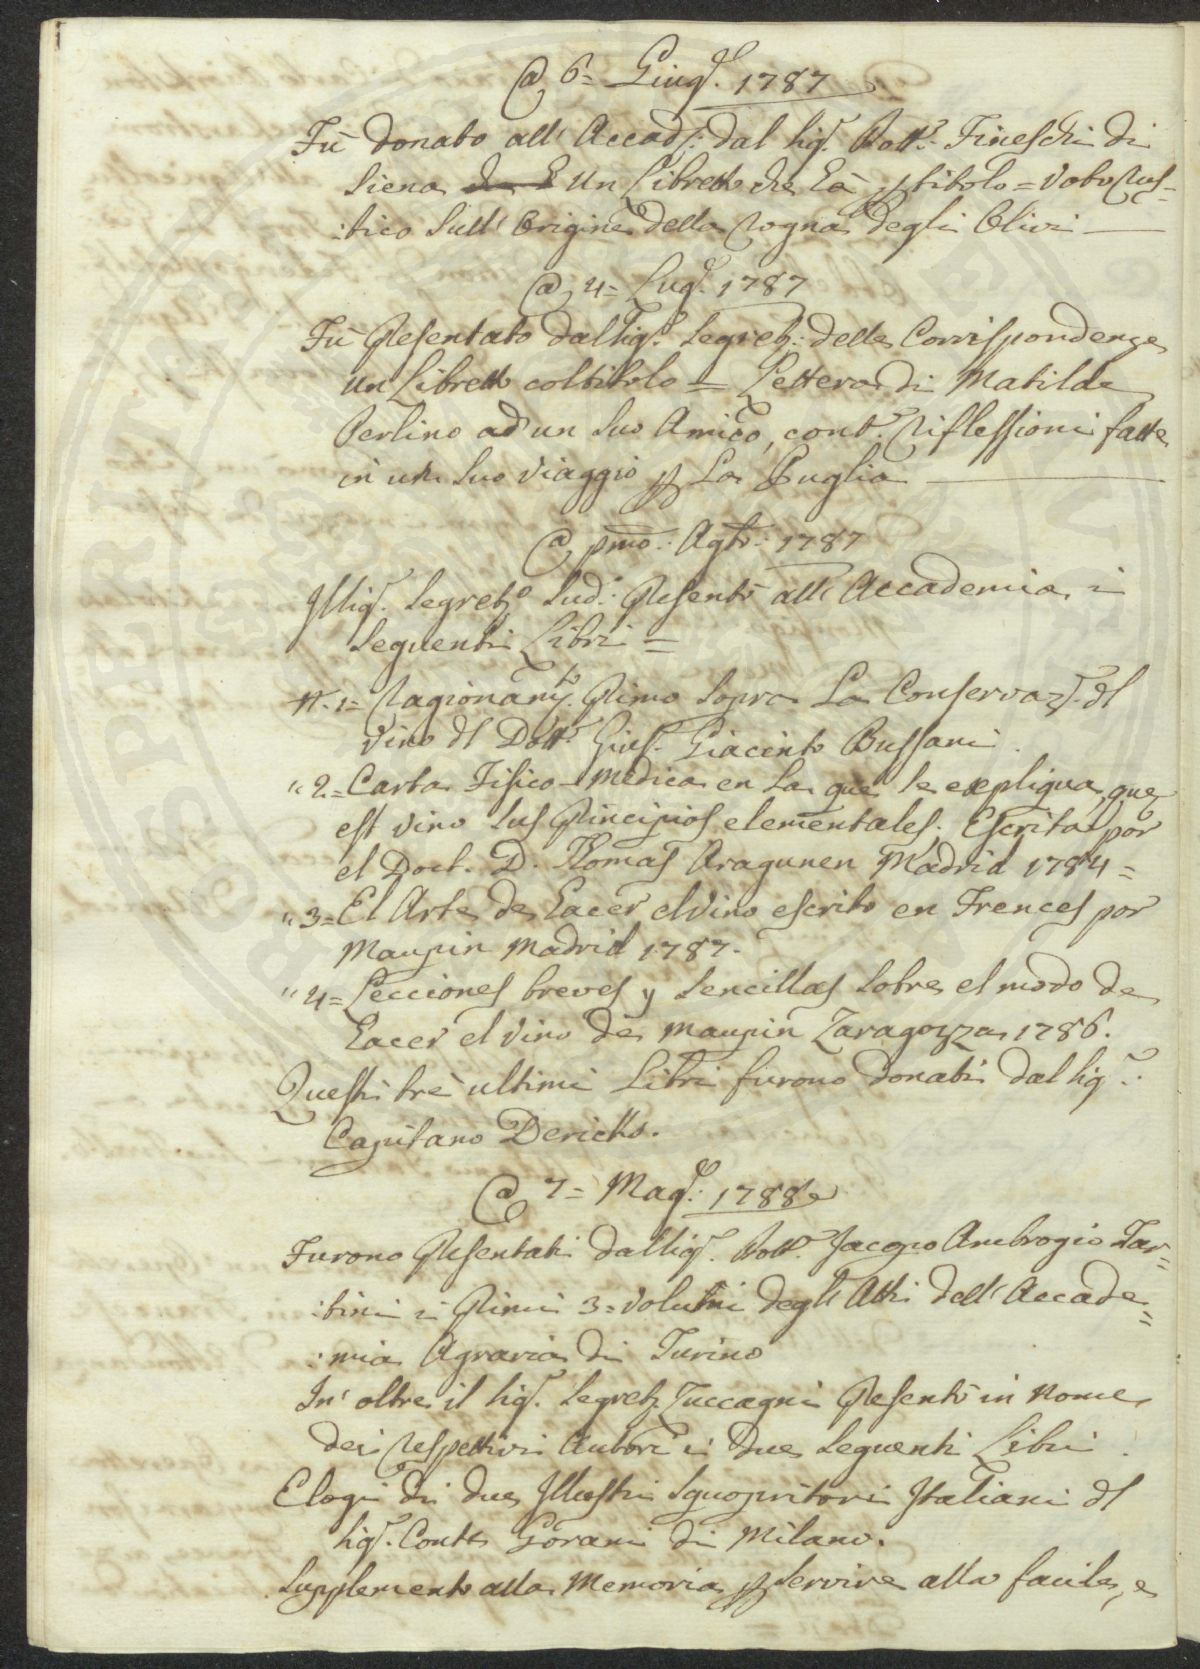 @ 6= Giug.º 1787
Fù donato all' Accad.ª dal Sig.r Dott.r Fineschi di
Siena Un Libretto che hà p titolo = Voto Rus=
:tico Sull' Origine della Rogna degli Olivi —
@ 4= Lug.º 1787
Fù Presentato dal Sig.r Segret.º delle Corrispondenze
un Libretto col titolo = Lettera di Matilde
Perlino ad un Suo Amico, cont.e Riflessioni fatte
in un Suo Viaggio p La Puglia —
@ pmo: Agto: 1787
Il Sig.r Segret.º Sud.º Presentò all' Accademia i
Seguenti Libri =
N. 1= Ragionam.to Primo Sopra La Conservaz.e dl
Vino dl Dott.r Gius.e Giacinto Bussani
" 2= Carta Fisico-Medica en La que Se expligua, que
est vino Sus Principios elementales. Escrita por
el Doct. D. Thomas Aragunen Madrid 1784=
" 3= El Arte de Hacer el Vino escrito en Frences por
Maupin Madrid 1787.
" 4= Lecciones breves y Sencillas Sobre el modo de
Hacer el Vino de Maupin Zaragozza 1786.
Questi trè ultimi Libri furono donati dal Sig.r
Capitano Derichs.
@ 7= Mag.º 1788
Furono Presentati dal Sig.r Dott.r Jacopo Ambrogio Tar=
:tini i Primi 3= Volumi degl' Atti dell' Accade=
:mia Agraria di Turino
In' oltre il Sig.r Segret.º Zuccagni Presentò in Nome
dei Respettivi Autori i due Seguenti Libri
Elogi di due Illustri Scuopritori Italiani dl
Sig.r Conte Gorani di Milano.
Supplemento alla Memoria p Servire alla facile, e